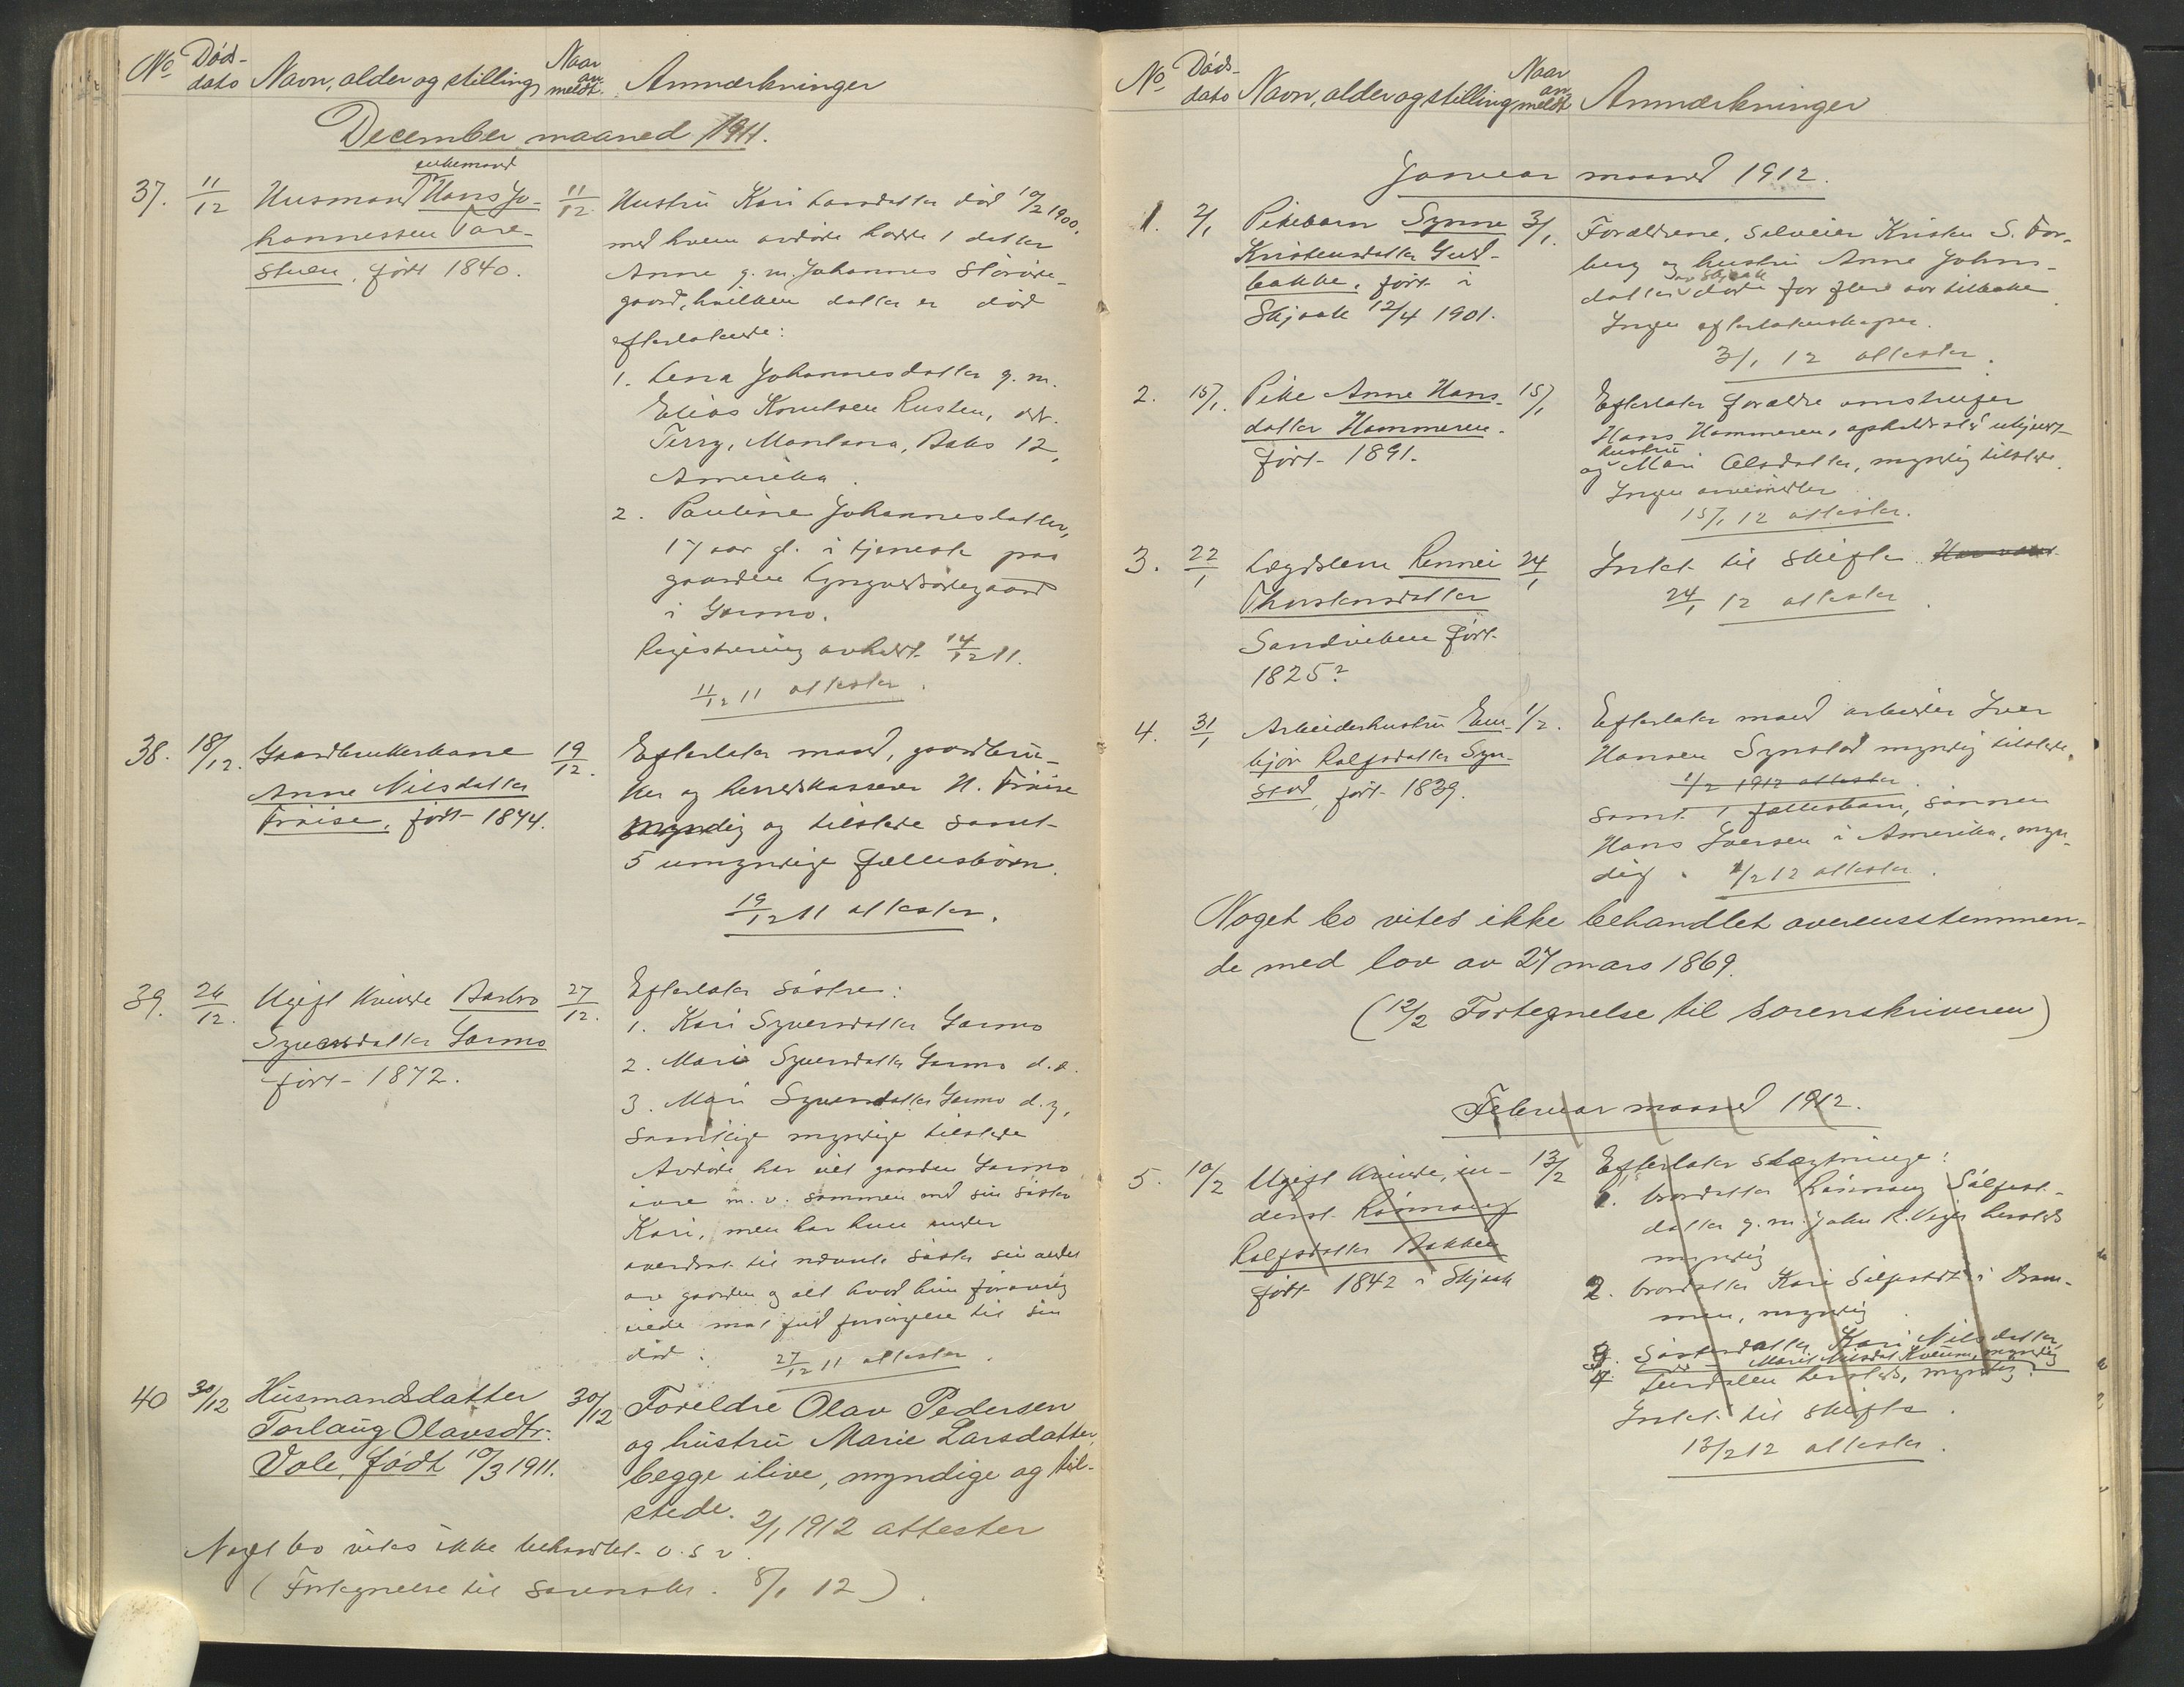 No Døds- Navn, alder og stilling Naar an- Anmærkninger
dato meldt.
December maaned 1911.
37. 11/12 Husmand enkemand Hans Jo- 11/12
hannessen Tore-
stuen, født 1840.
Hustru Kari Larsdatter død 10/2 1900,
med hvem avdøde hadde 1 datter
Anne g. m. Johannes
gaard, hvilken datter er død
efterlatende:
1. Lena Johannesdatter g. m.
Elias Knutsen Rusten, adr.
Terry, Montana, Boks 12,
Amerika.
2. Pauline Johannesdatter,
17 aar gl. i tjeneste paa
gaarden
i Garmo.
Registrering avholdt 14/12 11.
11/12 11 attester.
38. 18/12. Gaardbrukerkone 19/12.
Anne Nilsdatter
Frøise, født 1844.
Efterlater mand, gaardbru-
ker og herredskasserer H. Frøise
myndig og tilstede samt
5 umyndige fællesbørn.
19/12 11 attester.
39. 26/12. Ugift kvinde Barbro 27/12.
Syversdatter Garmo
født 1872.
Efterlater søstre:
1. Kari Syversdatter Garmo
2. Mari Syversdatter Garmo d. e.
3. Mari Syversdatter Garmo d. y.
samtlige myndige tilstede
Avdøde har eiet gaarden Garmo
øvre m. v. sammen med sin søster
Kari, men har hun
overdrat til nævnte søster sin andel
av gaarden og alt hvad hun forøvrig
eiede mot fuld forsørgelse til sin
død. 27/12 11 attester.
40 30/12 Husmandsdatter 30/12
Torlaug Olavsdtr.
Vole, født 10/3 1911.
Foreldre Olav Pedersen
og hustru Marie Larsdatter,
begge ilive, myndige og til-
stede. 2/1 1912 attester
Noget bo vites ikke behandlet o. s. v.
(Fortegnelse til sorenskr. 8/1 12).
No Døds- Navn, alder og stilling Naar an- Anmærkninger
dato meldt
Januar maaned 1912.
1. 2/1 Pikebarn Synne 3/1.
Kristensdatter Gud-
bakke, født i
Skjaak 12/4 1901.
Forældrene, Kristen S. For-
berg og hustru Anne Johns-
datter av Skjaak døde for flere aar tilbake.
Ingen efterlatenskaper.
3/1 12 attester.
2. 15/1. Pike Anne Hans- 15/1
datter Hammeren.
født 1891.
Efterlater forældre
Hans Hammeren, opholdssted ukjendt
og hustru Mari Olsdatter, myndig tilstede.
Ingen
15/1 12 attester.
3. 22/1 Lægdslem Rennei 24/1
Thorstensdatter
Sandviken født
1825?
Intet til skifte.
24/1 12 attester.
4. 31/1 Arbeiderhustru Em- 1/2.
bjør Rolfsdatter Syn-
stad, født 1839.
Efterlater mand arbeider Iver
Hansen Synstad myndig tilstede.
1/2 1912 attester
samt 1 fællesbarn, sønnen
Hans Iversen i Amerika, myn-
dig. 1/2 12 attester.
Noget bo vites ikke behandlet overensstemmen-
de med lov av 27 mars 1869.
(12/2 Fortegnelse til sorenskriveren)
Februar maaned 1912.
5. 10/2 Ugift kvinde, in- 13/2
derst Rønnaug
Rolfsdatter Bakken
født 1842 i Skjaak
Efterlater slægtninge:
1. brordatter Rønnaug Sølfest-
datter g. m. John R. herstede
myndig
2. brordatter Kari Sølfestdtr i Dram-
men, myndig.
3. Søsterdatter Kari Nilsdatter
Marit Nilsdat Kveum, myndig
4. herstede, myndig.
Intet til skifte.
13/2 12 attester.